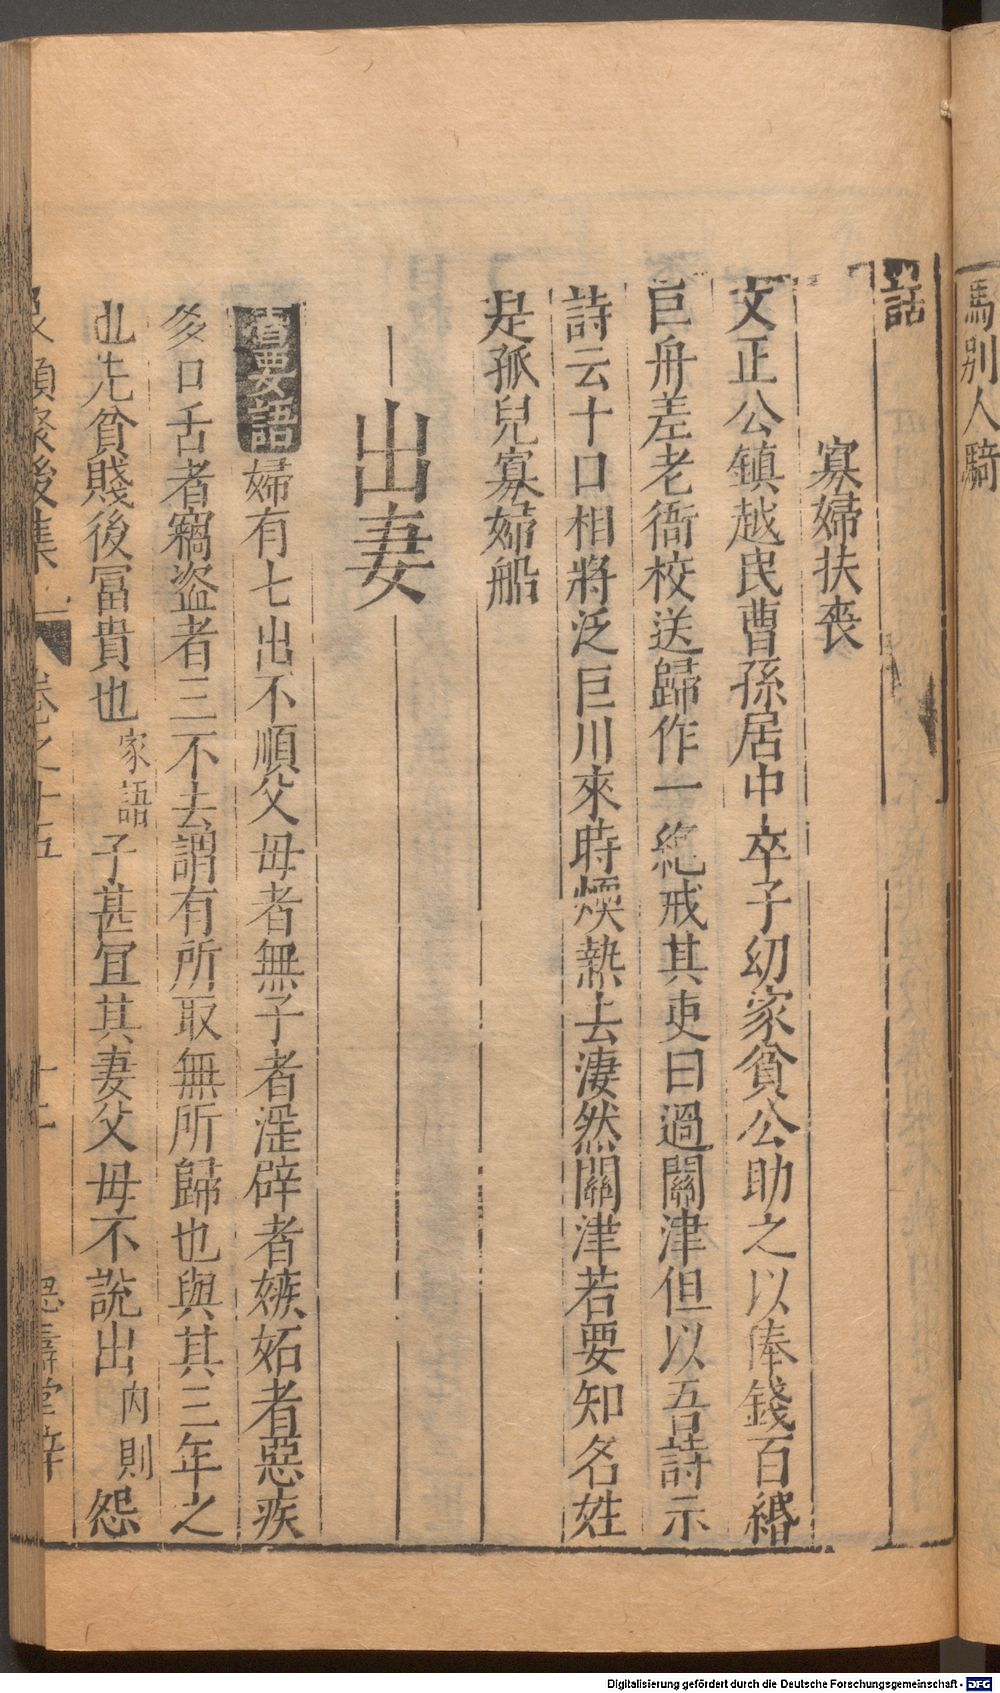 馬別人騎
話
寡婦扶喪
文正公鎮越民曹孫居中卒子幼家貧公助之以俸錢百緡
巨舟差老衙校送歸作一絶戒其吏曰過關津但以吾詩示
詩云十口相將泛巨川來時煖熱去淒然關津若要知名姓
是孤兒寡婦船
出妻
羣要語婦有七出不順父母者無子者淫辟者嫉妬者惡疾
多口舌者竊盗者三不去謂有所取無所歸也與其三年之
也先貧賤後冨貴也家語子甚冝其妻父母不說出内則怨
類聚後集 卷之十五 十二 德壽堂梓
Digitalisierung gefördert durch die Deutsche Forschungsgemeinschaft - DFG